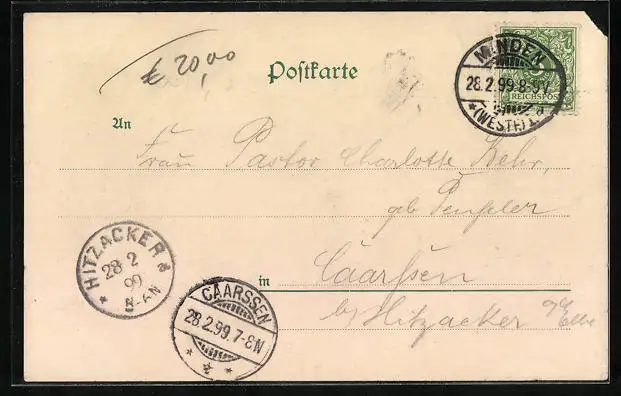 € 20,00
Postkarte
MINDEN
28.2.99.8-9V
* (WESTF) 1. d
5
REICHSPOST
An
Frau Pastor Charlotte Kehr,
geb.
HITZACKER d
28 2
99
5-6N
in
Caarssen
CAARSSEN
28.2.99.7-8N
by Hitzacker a/d Elbe